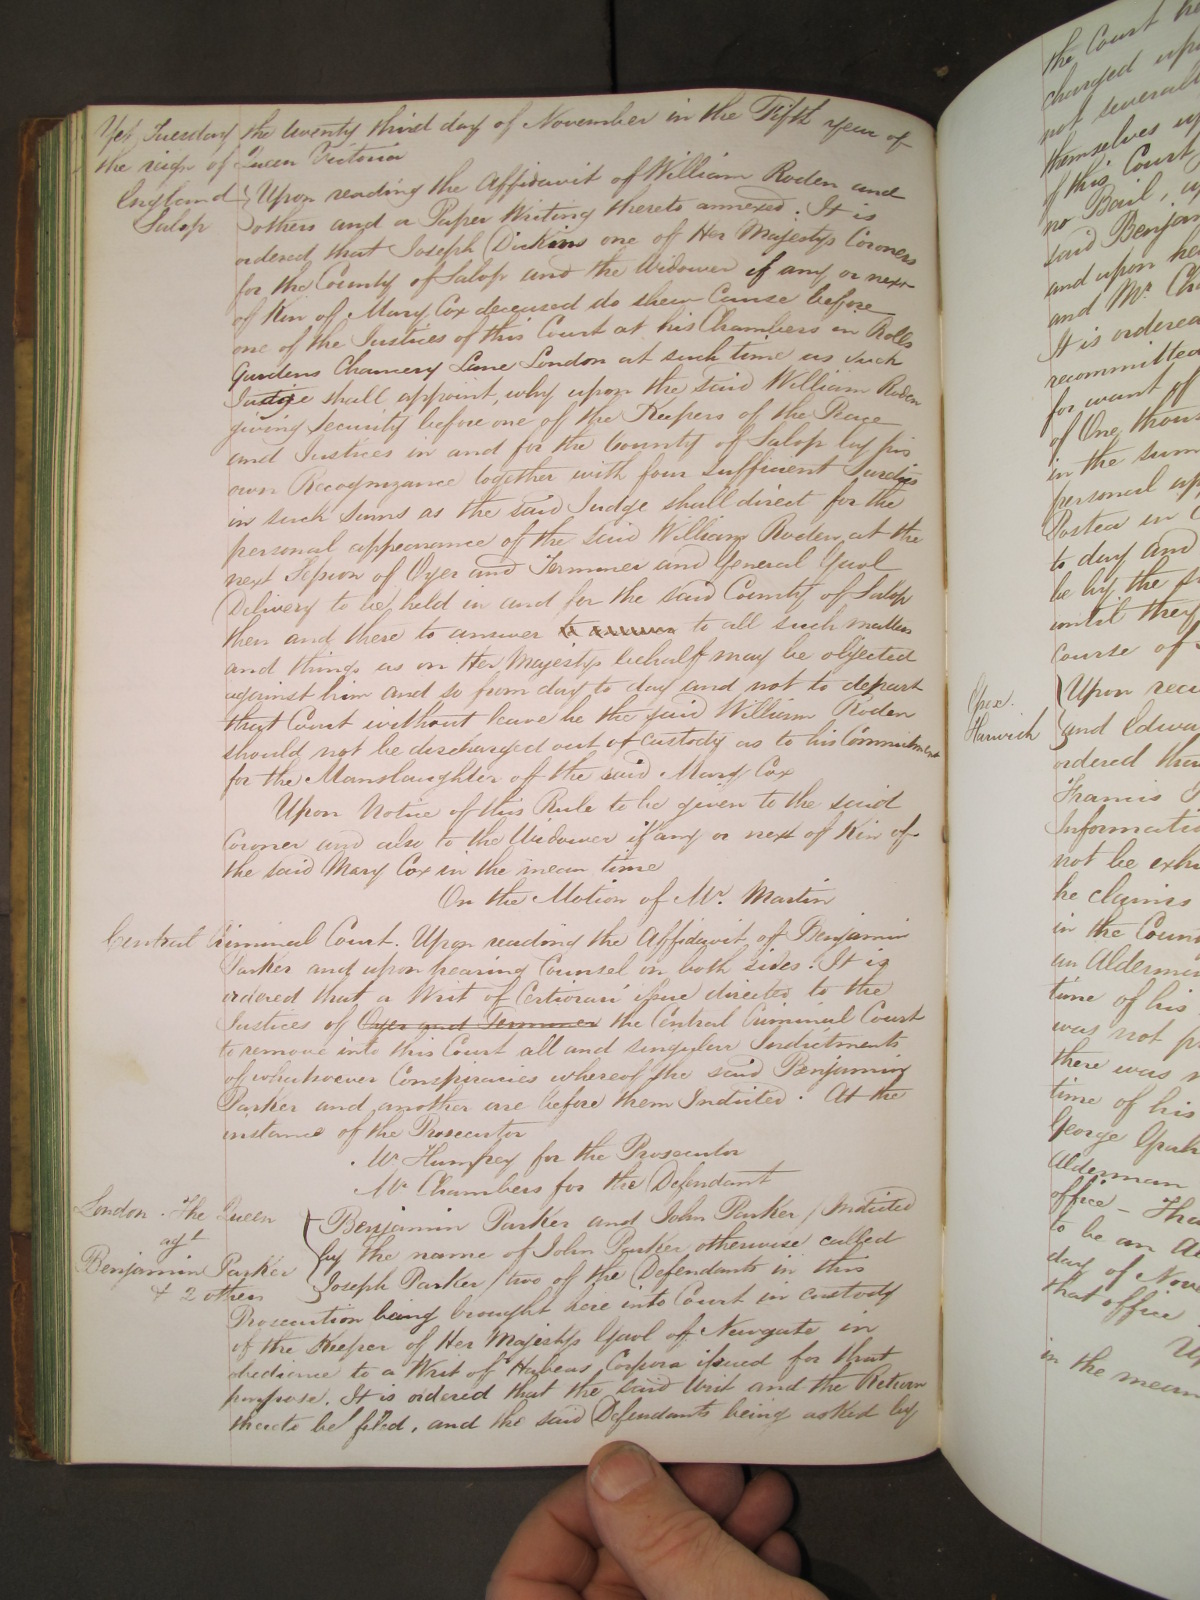 Yet Tuesday the twenty third day of November in the Fifth year of
the reign of Queen Victoria
England Upon reading the Affidavit of William Roden and
Salop others and a Paper Writing thereto annexed. It is
ordered that Joseph Dickins one of Her Majestys Coroners
for the County of Salop and the Widower if any or next
of Kin of Mary Cox deceased do shew Cause before
one of the Justices of this Court at his Chambers in Rolls
Gardens Chancery Lane London at such time as such
Judge shall appoint, why upon the said William Roden
giving Security before one of the Keepers of the Peace
and Justices in and for the County of Salop by his
own Recognizance together with four sufficient Sureties
in such Sums as the said Judge shall direct for the
personal appearance of the said William Roden at the
next Session of Oyer and Terminer and General Gaol
Delivery to be held in and for the said County of Salop
then and there to answer to all such matters
and things as on Her Majestys behalf may be objected
against him and so from day to day and not to depart
that Court without leave he the said William Roden
should not be discharged out of custody as to his Commitment
for the Manslaughter of the said Mary Cox
Upon Notice of this Rule to be given to the said
Coroner and also to the Widower if any or next of Kin of
the said Mary Cox in the mean time
On the Motion of Mr. Martin
Central Criminal Court. Upon reading the Affidavit of Benjamin
Parker and upon hearing Counsel on both sides. It is
ordered that a Writ of Certiorari issue directed to the
Justices of Oyer and Terminer the Central Criminal Court
to remove into this Court all and singular Indictments
of whatsoever Conspiracies whereof the said Benjamin
Parker and another are before them Indicted. At the
instance of the Prosecutor
Mr Humfrey for the Prosecutor
Mr Chambers for the Defendant
London. The Queen Benjamin Parker and John Parker / Indicted
agt by the name of John Parker otherwise called
Benjamin Parker Joseph Parker / two of the Defendants in this
& 2 others
Prosecution being brought here into Court in custody
of the Keeper of Her Majestys Gaol of Newgate in
obedience to a Writ of Habeas Corpora issued for that
purpose. It is ordered that the said Writ and the Return
thereto be filed, and the said Defendants being asked by
the Court
charged upon
not several
themselves
of this Court
no Bail,
said Benjamin
and upon
and Mr.
It is ordered
recommitted
for want of
of One
in the sum
personal
Postea in
to day and
be by the
until they
course of
Upon
Harwich and
ordered that
Francis
Information
not be
he claims
in the
an Alderman
time of his
was not
there was
time of his
George
Alderman
office -
to be an
day of
that office
in the mean